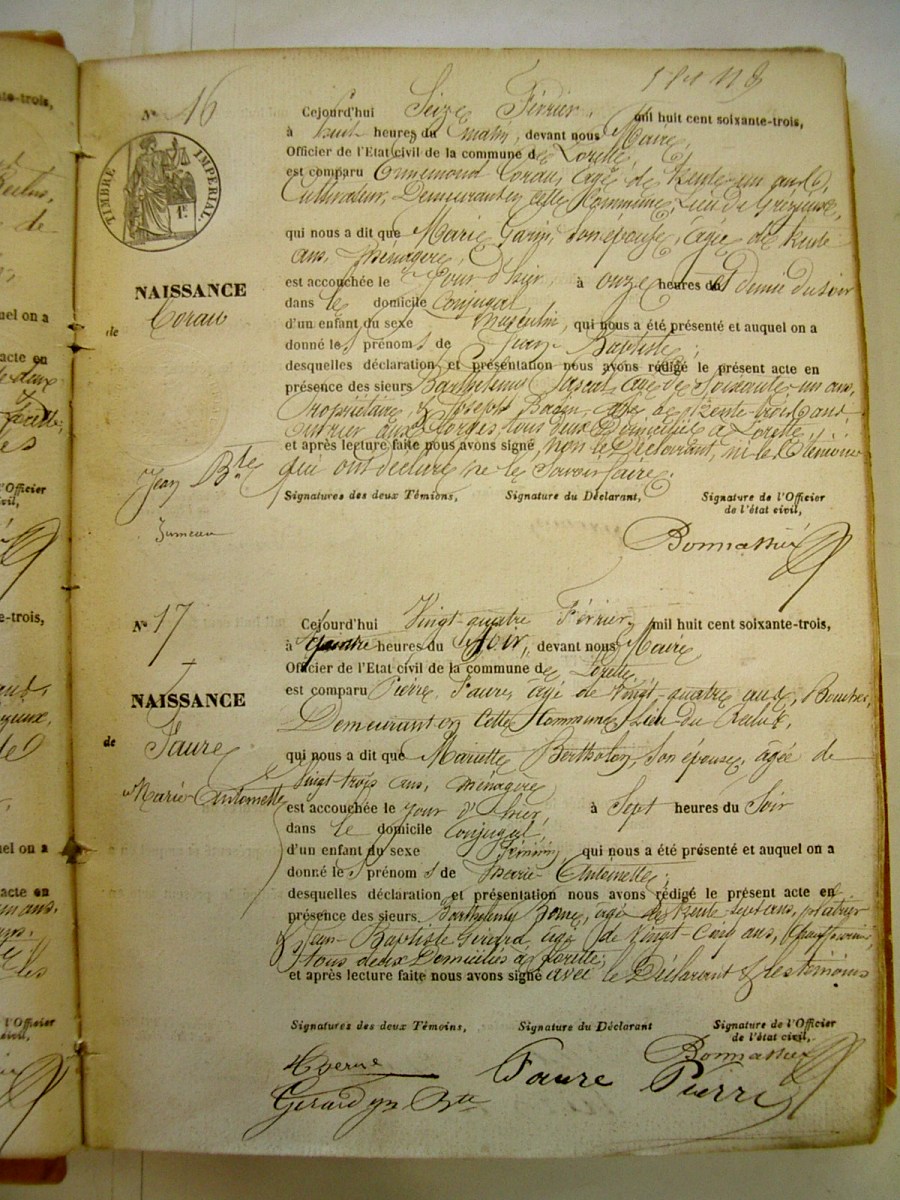 te-trois,
N° 16
Cejourd'hui Seize Février, mil huit cent soixante-trois,
à huit heures du matin, devant nous Maire,
Officier de l'Etat civil de la commune de Lorette,
est comparu Ennemond Corau, agé de trente un ans,
Cultivateur, Demeurant en cette Commune, Lieu de
TIMBRE IMPERIAL.
1F.
qui nous a dit que Marie Garin, son épouse, agée de trente
ans, Ménagère,
NAISSANCE
est accouchée le Jour d'hier, à onze heures du et Demie du soir
de
Corau
dans le domicile Conjugal,
d'un enfant du sexe Masculin, qui nous a été présenté et auquel on a
donné les prénoms de Jean Baptiste;
desquelles déclaration et présentation nous avons rédigé le présent acte en
présence des sieurs Barthelemi Pascal, agé de Soixante-un ans,
Propriétaire, & Joseph agé de trente-trois ans
Ouvrier aux Forges, tous deux Domiciliés à Lorette;
et après lecture faite nous avons signé, non le Déclarant, ni les Témoins
Jean Bte
qui ont déclaré ne le Savoir faire.
Signatures des deux Témions, Signature du Déclarant, Signature de l'Officier
de l'état civil,
Jumeau
Bonnassieux
N° 17
Cejourd'hui Vingt-quatre Février, mil huit cent soixante-trois,
à quatre heures du Soir, devant nous Maire
Officier de l'Etat civil de la commune de Lorette,
est comparu Pierre Faure, agé de Vingt-quatre ans, Boucher,
NAISSANCE
Demeurant en cette Commune, Lieu du
de
Faure
qui nous a dit que Mariette Bertholon, Son épouse, agée de
Vingt-trois ans, ménagère,
Marie-Antoinette
est accouchée le Jour d'hier, à Sept heures du Soir
dans le domicile Conjugal,
d'un enfant du sexe Féminin, qui nous a été présenté et auquel on a
donné les prénoms de Marie-Antoinette;
desquelles déclaration et présentation nous avons rédigé le présent acte en
présence des sieurs Barthelemy agé de trente-sept ans, platrier
& Jean-Baptiste Girard, agé de Vingt-cinq ans,
tous deux Domiciliés à Lorette;
et après lecture faite nous avons signé avec le Déclarant & les témoins
Signatures des deux Témoins, Signature du Déclarant Signature de l'Officier
de l'état civil,
Bonnassieux
Faure Pierre
Girard Bte